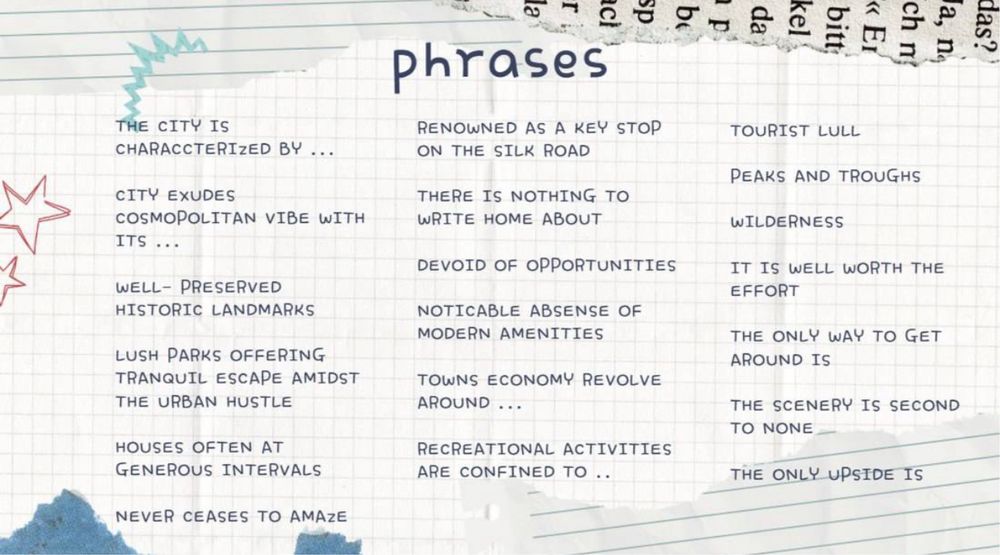 das?
Ja, n
ch m
« Er
bitt
kel
da
n p
be
sp
aci
r i
la
phrases
THE CITY IS
CHARACCTERIZED BY ...
CITY EXUDES
COSMOPOLITAN VIBE WITH
ITS ...
WELL- PRESERVED
HISTORIC LANDMARKS
LUSH PARKS OFFERING
TRANQUIL ESCAPE AMIDST
THE URBAN HUSTLE
HOUSES OFTEN AT
GENEROUS INTERVALS
NEVER CEASES TO AMAZE
RENOWNED AS A KEY STOP
ON THE SILK ROAD
THERE IS NOTHING TO
WRITE HOME ABOUT
DEVOID OF OPPORTUNITIES
NOTICABLE ABSENSE OF
MODERN AMENITIES
TOWNS ECONOMY REVOLVE
AROUND ...
RECREATIONAL ACTIVITIES
ARE CONFINED TO ..
TOURIST LULL
PEAKS AND TROUGHS
WILDERNESS
IT IS WELL WORTH THE
EFFORT
THE ONLY WAY TO GET
AROUND IS
THE SCENERY IS SECOND
TO NONE
THE ONLY UPSIDE IS